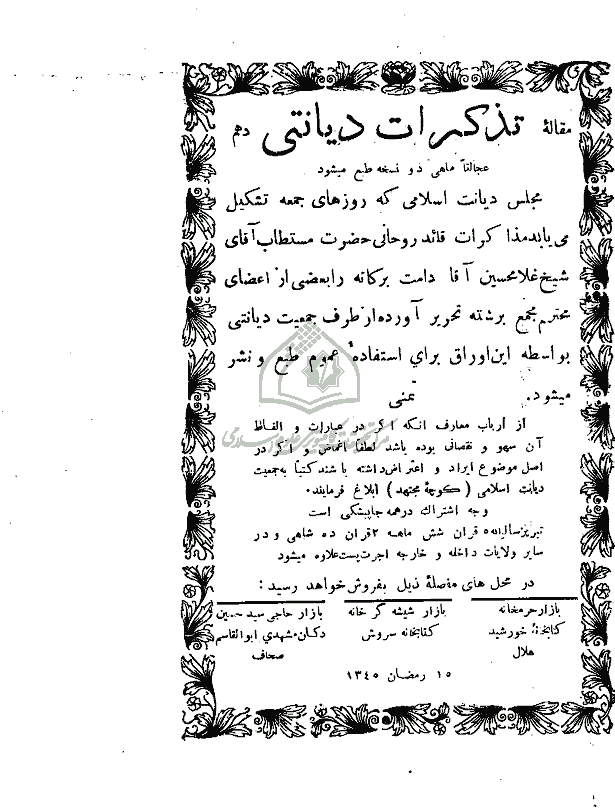 مقالهٔ تذکرات دیانتی دهم
عجالتاً ماهی دو نسخه طبع میشود
مجلس دیانت اسلامی که روزهای جمعه تشکیل
می یابد مذاکرات قائد روحانی حضرت مستطاب آقای
شیخ غلامحسین آقا دامت برکاته را بعضی از اعضای
محترم مجمع برشته تحریر آورده از طرف جمعیت دیانتی
بواسطه این اوراق برای استفادهٔ عموم طبع و نشر
میشود. تمنی
از ارباب معارف انکه اکر در عبارات و الفاظ
آن سهو و نقصانی بوده باشد لطفاً اغماض و اکر در
اصل موضوع ایراد و اعتراض داشته باشند کتباً به جمعیت
دیانت اسلامی ( کوچهٔ مجتهد ) ابلاغ فرمایند.
وجه اشتراك در همه جا پیشکی است
تبریز سالیانه ۵ قران شش ماهه ۲ قران ده شاهی و در
سایر ولایات داخله و خارجه اجرت پست علاوه میشود
در محل های مفصلهٔ ذیل بفروش خواهد رسید :
بازار حرمخانه
کتابخانهٔ خورشید
هلال
بازار شیشه گر خانه
کتابخانه سروش
بازار حاجی سید حسین
دکان مشهدی ابوالقاسم
صحاف
۱۵ رمضان ۱۳۴۵